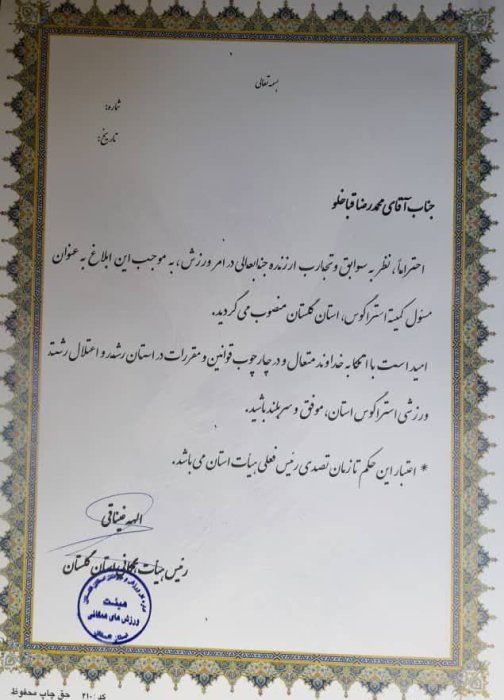 بسمه تعالی
شماره:
تاریخ:
جناب آقای محمدرضا قباخلو
احتراماً، نظر به سوابق و تجارب ارزنده جنابعالی در امر ورزش، به موجب این ابلاغ به عنوان
مسئول کمیته استراگوس، استان گلستان منصوب می گردید.
امید است با اتکا به خداوند متعال و در چارچوب قوانین و مقررات در استان رشد و اعتلال رشته
ورزشی استراگوس استان، موفق و سربلند باشید.
* اعتبار این حکم تا زمان تصدی رئیس فعلی هیأت استان می باشد.
الهه
رئیس هیأت همگانی استان گلستان
هیئت
ورزش های همگانی
کد: ۲۱۰ حق چاپ محفوظ